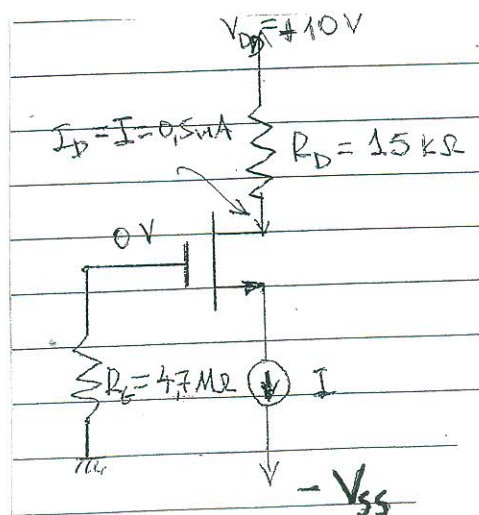 V_DD = +10V
I_D = I = 0,5mA
R_D = 15 kΩ
0 V
R_G = 4,7 MΩ
I
- V_SS